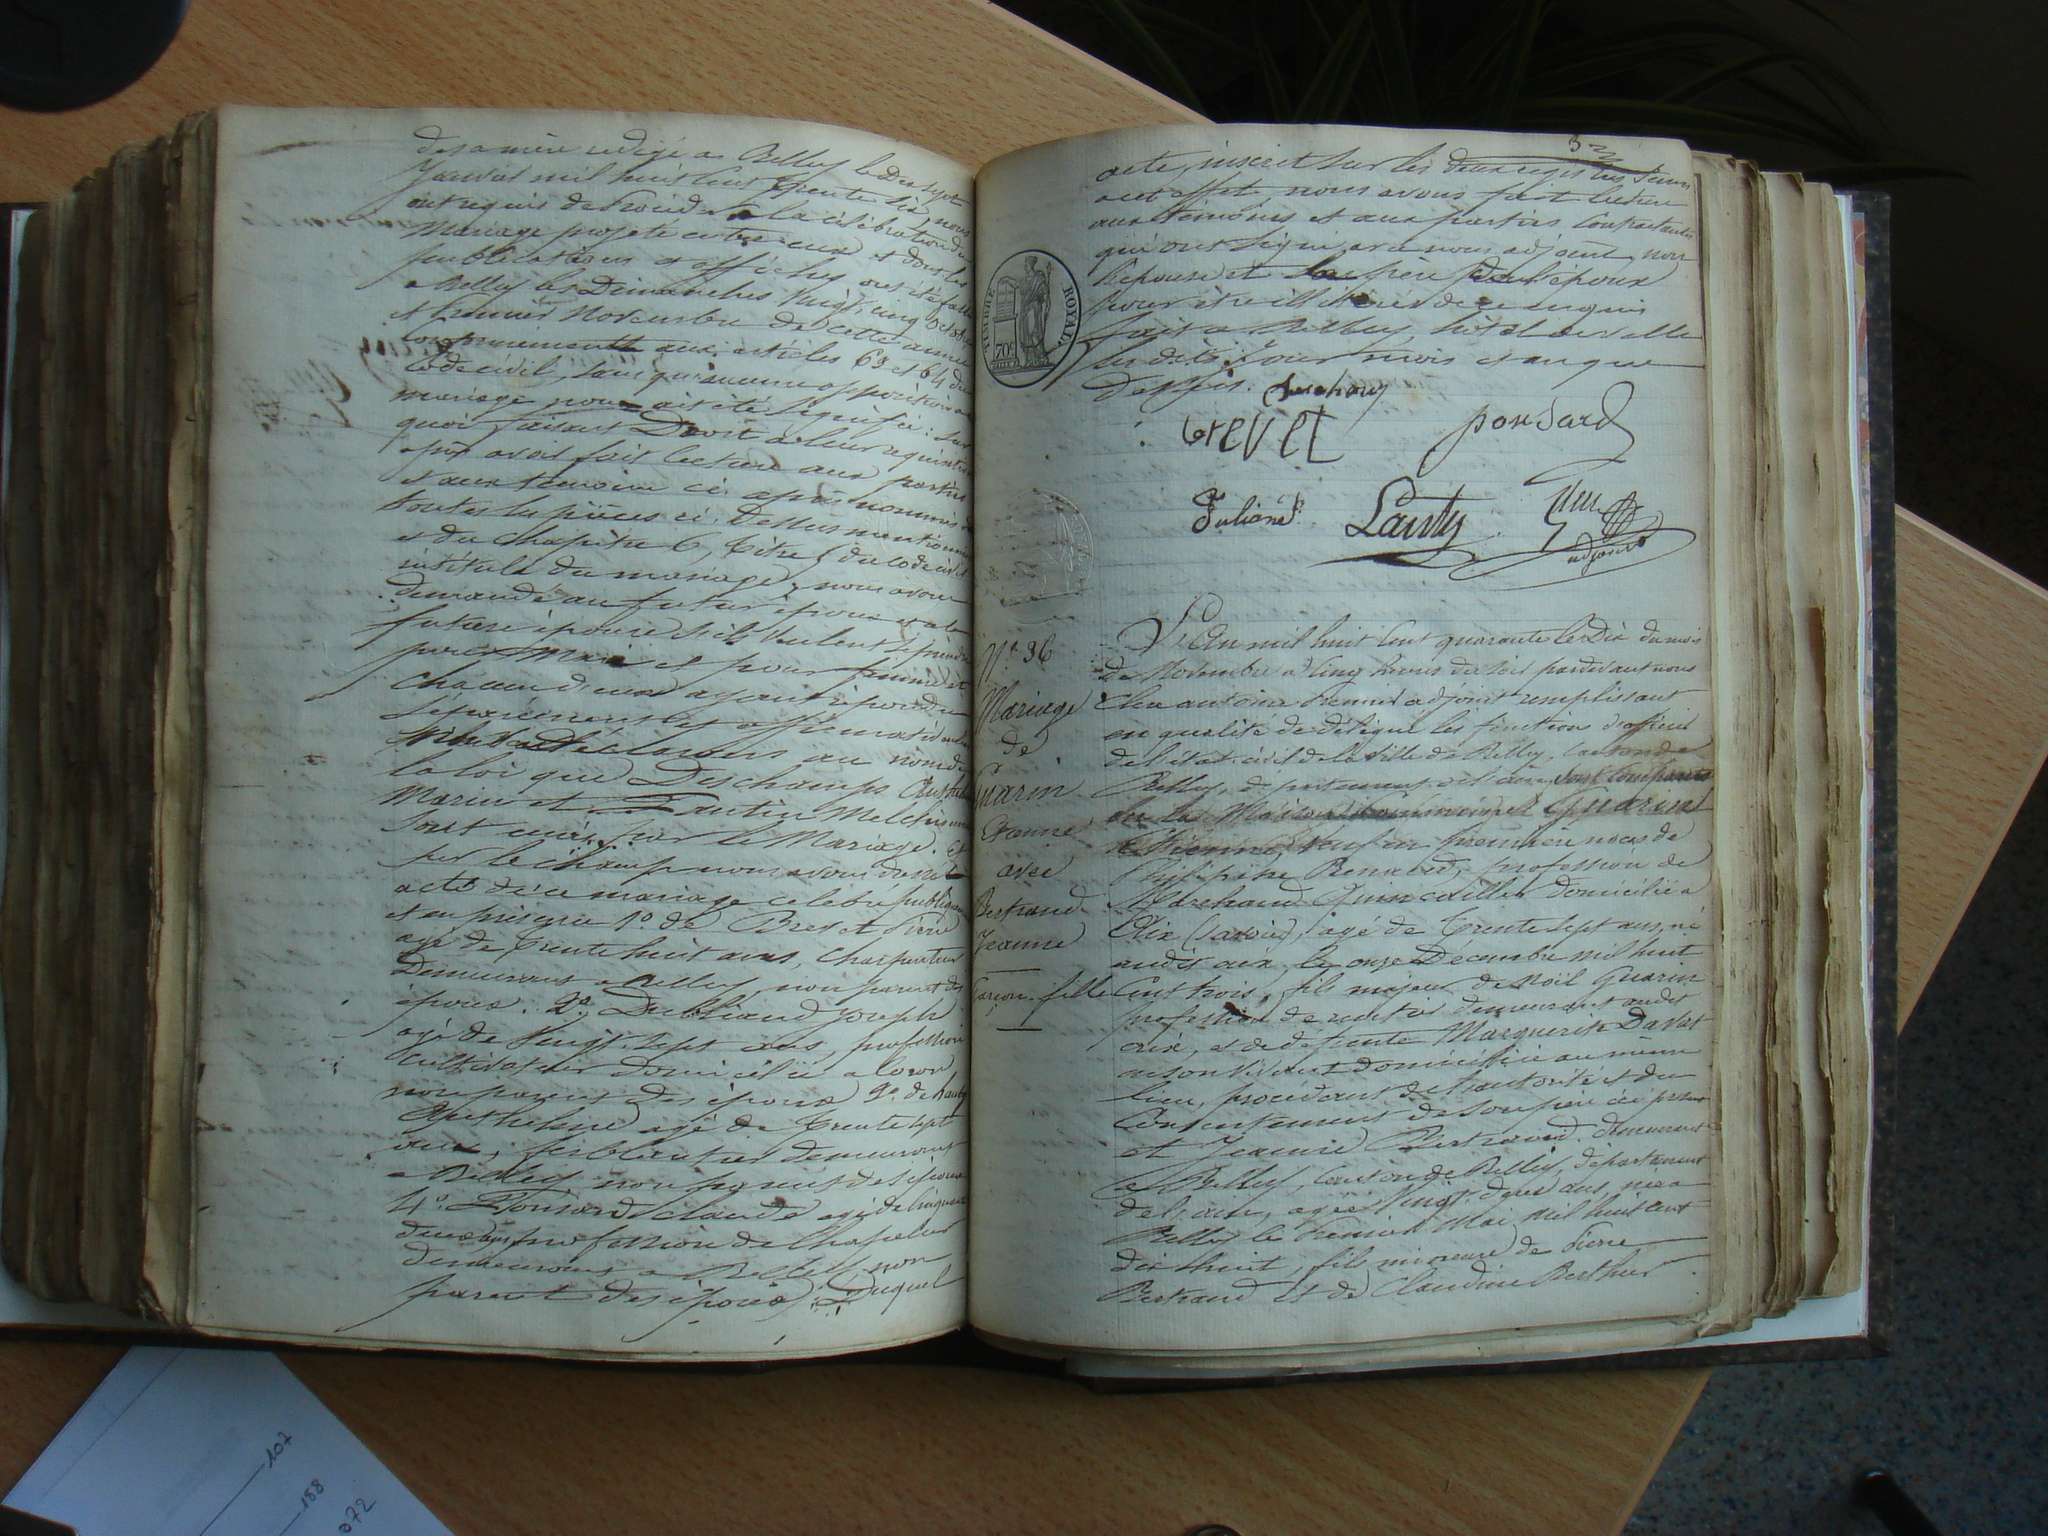 de sa mère rédigé a Belley le Dix sept
Janvier mil huit Cent Trente six, nous
ont requis de procéder a la célébration du
Mariage projeté entre eux et dont les
publications et affiches ont été faites
a Belley les Dimanches Vingt cinq octobre
et premier Novembre de cette année
Conformément aux articles 63 et 64 du
Code civil, sans qu'aucune opposition au
mariage nous ait été signifiée: Sur
quoi faisant Droit a leur réquisition
après avoir fait lecture aux parties
et aux témoins ci après nommés de
toutes les pièces ci-Dessus mentionnées
et du chapitre 6, titre 5 du Code civil
intitulé du mariage, nous avons
demandé au futur époux et a la
future épouse s'ils veulent se prendre
pour Mari et pour femme et
chacun d'eux ayant répondu
séparément et affirmativement
déclarons au nom de
la loi que Deschamps Anthelme
Marin et Lautin
sont unis par le Mariage. Et
sur le champ nous avons dressé
acte de ce mariage célébré publiquement
et en présence 1º de Brevet Pierre
agé de trente huit ans, Charpentier
Demeurant a Belley, non parent des
époux. 2º Joseph
agé de Vingt sept ans, profession
Cultivateur domicilié a
non parent des époux 3º de
Anthelme agé de Trente sept
ans, ferblantier demeurant
a Belley non parent des époux
4º Ponsard Claude agé de cinquante
deux ans profession de Chapelier
demeurant a Belley non
parent des époux. Duquel
acte, inscrit sur les deux registres tenus
a cet effet nous avons fait lecture
aux témoins et aux parties Contractantes
qui ont signé avec nous adjoint, non
l'épouse et le père de l'époux
pour être illitérés de ce enquis
fait a Belley hôtel de ville
les dits Jour mois et an que
dessus.
TIMBRE ROYAL
70c
Grevet
ponsard
Juliane
Lauty
adjoint
Nº 36
Mariage
de
Guarin
Etienne
avec
Bertrand
Jeanne
Garçon fille
L'An mil huit Cent quarante le Dix du mois
de Novembre a Cinq heures du soir pardevant nous
adjoint remplissant
en qualité de délégué les fonctions d'officier
de l'état civil de la ville de Belley, Canton de
Belley, département de l'ain, sont comparus
en la Maison Commune Guarin
Etienne, Veuf en première noces de
profession de
Marchand Quincaillier domicilié a
Aix (Savoie), agé de Trente sept ans, né
audit aix le onze Décembre mil huit
Cent trois, fils majeur de Noël Guarin
profession de rentier demeurant audit
aix, et de défunte Marguerite Davat
en son vivant domiciliée au même
lieu, procédant de l'autorité et du
Consentement de son père ici présent
et Jeanne Bertrand demeurant
a Belley, Canton de Belley, département
de l'ain, agée Vingt deux ans, née a
Belley le premier Mai mil huit cent
dix huit, fille mineure de Pierre
Bertrand et de Claudine Berthet
107
188
072